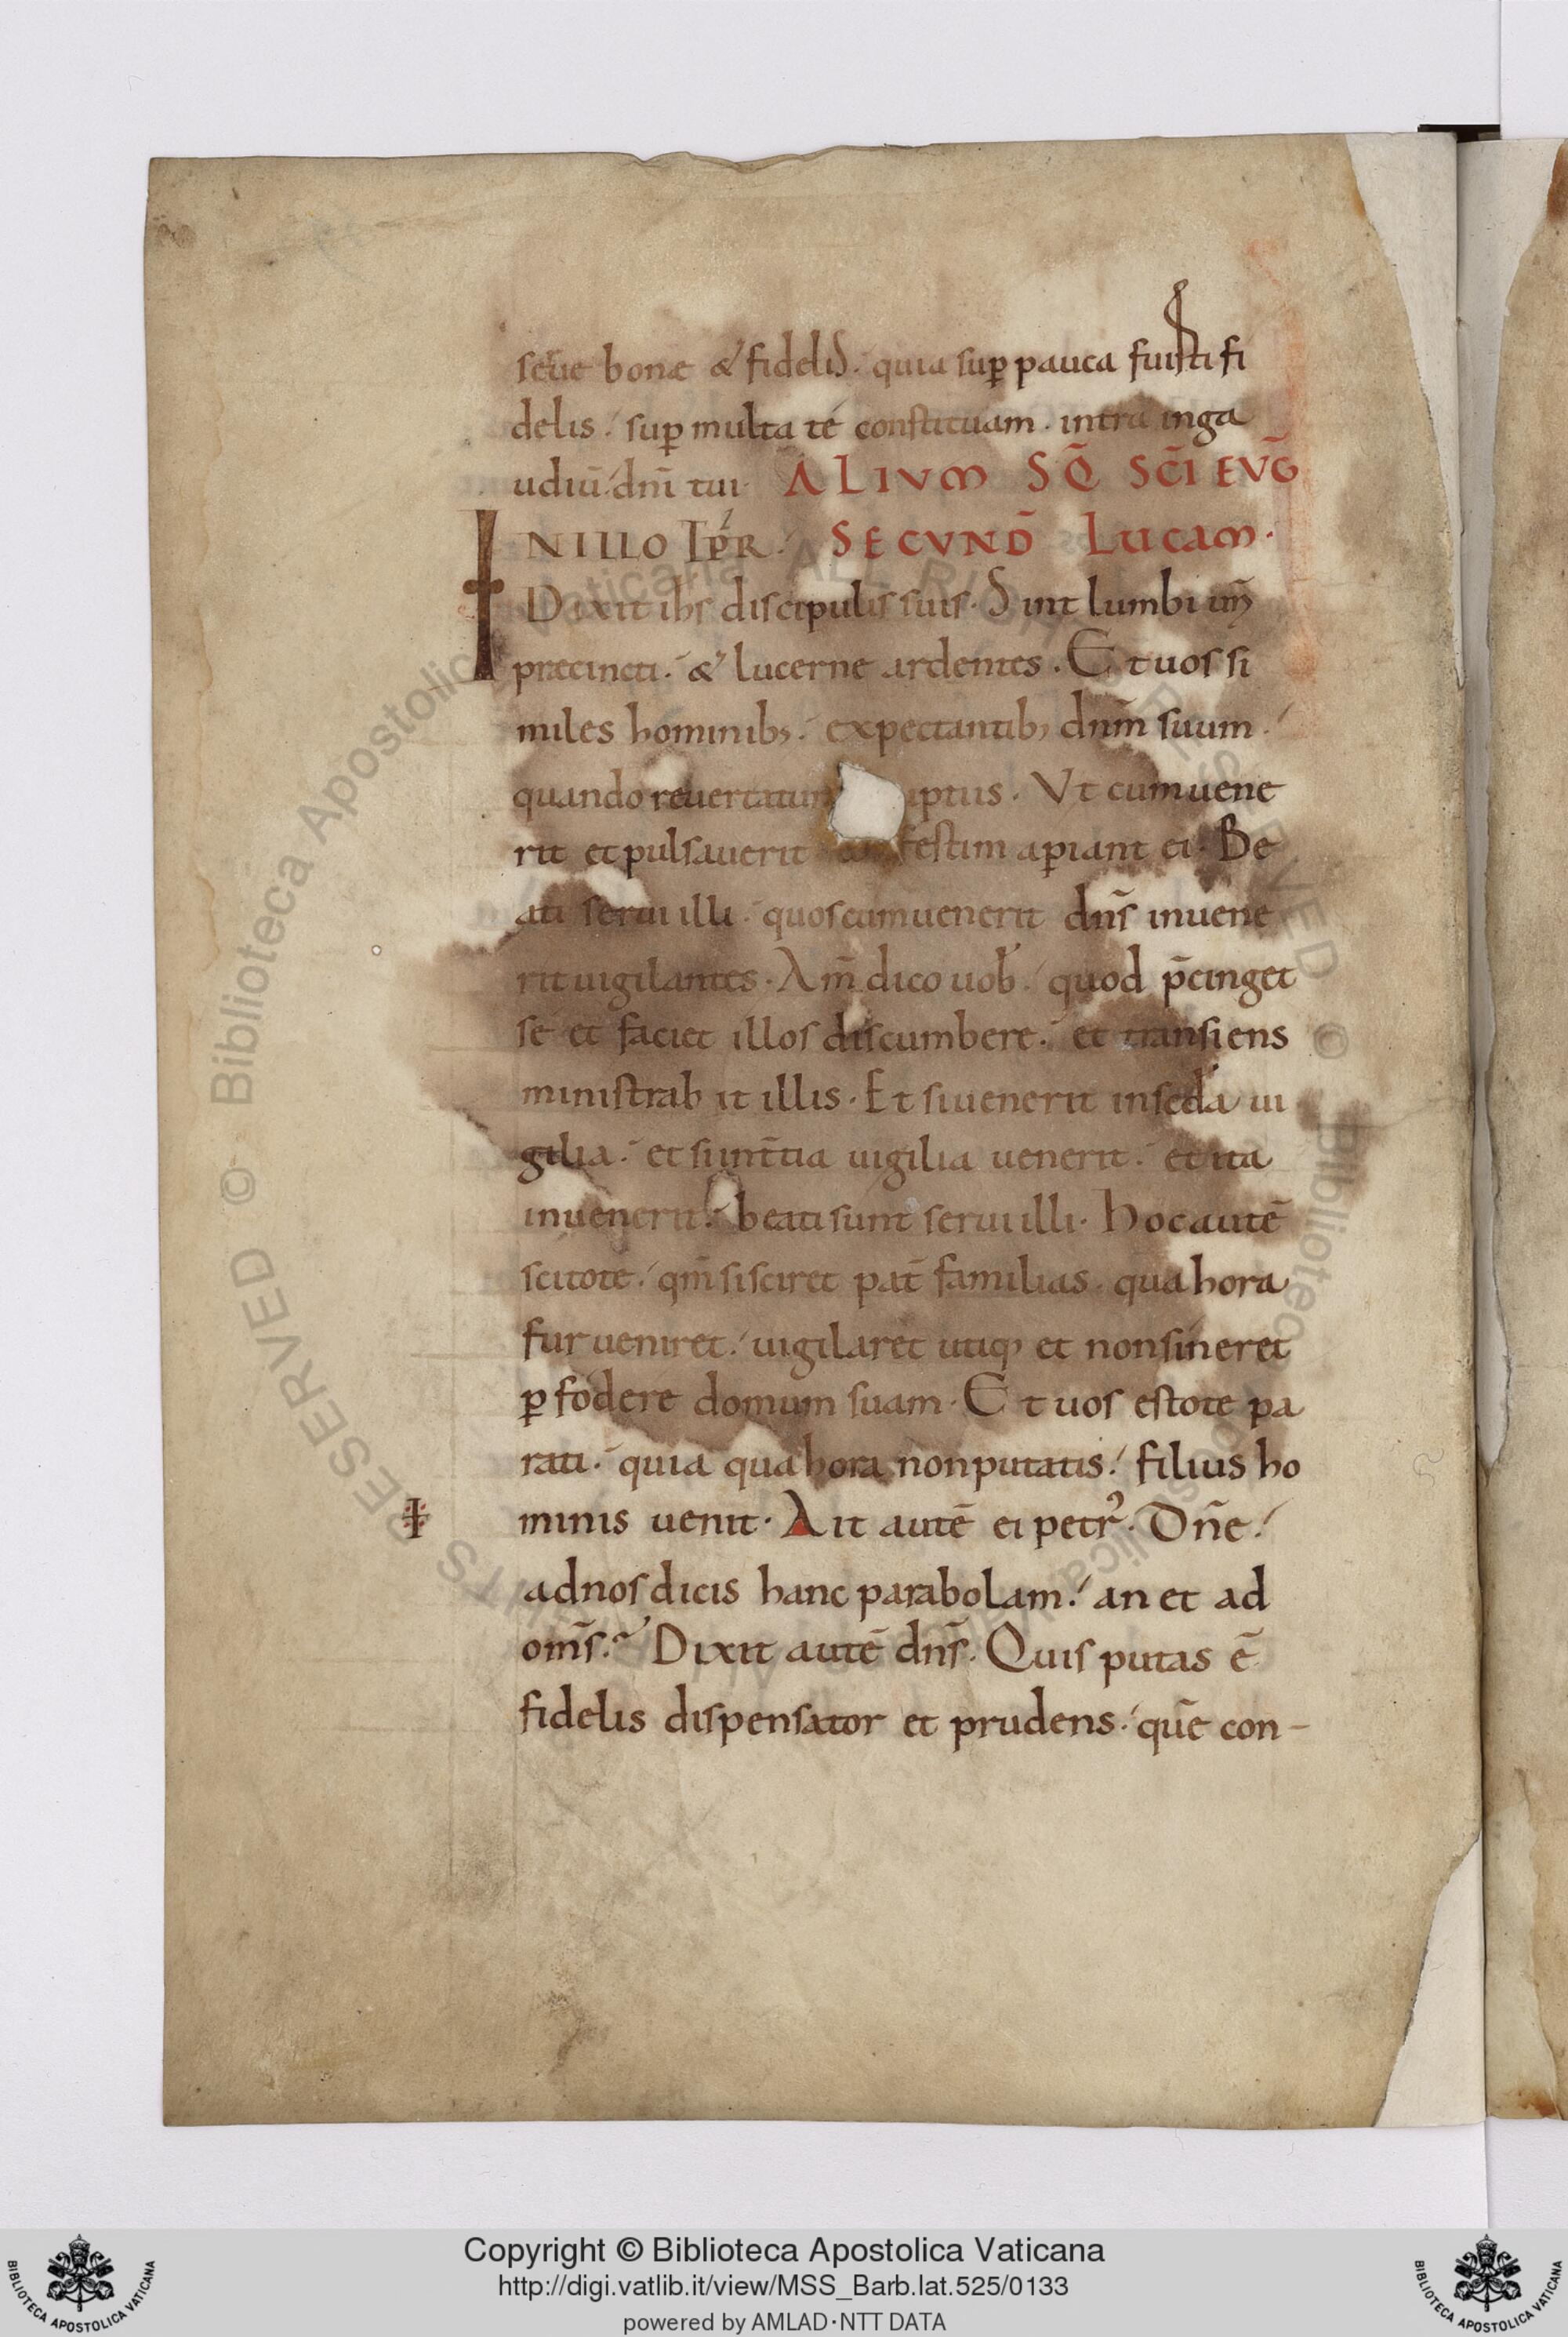 serue bonae & fidelis. quia sup̱ pauca fuisti fi
delis. sup̱ multa te constituam. intra inga
udiū dn̄i tui. ALIVM SQ̄ SC̄I EVḠ
INILLO TP̄R. SECVND̄ LUCAM.
Dixit ihs discipulis suis. Sint lumbi ur̄i
precincti. & lucerne ardentes. Et uos si
miles hominibꝫ. expectantibꝫ dnm̄ suum.
quando reuertatur iptus. Vt cumuene
rit et pulsauerit festim aꝑiant ei. Be
ati serui illi. quoscumuenerit dn̄s inuene
rit uigilantes. Am̄ dico uob. quod p̄cinget
se et faciet illos discumbere. et transiens
ministrab it illis. Et siuenerit inseda ui
gilia. et sint̄tia uigilia uenerit. et ita
inuenerit. beatisunt seruiilli. Hocautē
scitote. qm̄sisciret pat̄ familias. qua hora
fur ueniret. uigilaret utiqꝫ et nonsineret
ꝑfodere domum suam. Et uos estote pa
rati. quia qua hora nonputatis. filius ho
minis uenit. Ait autē ei petrꝰ. Dn̄e.
adnosdicis hanc parabolam. an et ad
om̄s. Dixit autē dn̄s. Quis putas ē
fidelis dispensator et prudens. quē con-
Copyright © Biblioteca Apostolica Vaticana
http://digi.vatlib.it/view/MSS_Barb.lat.525/0133
powered by AMLAD·NTT DATA
BIBLIOTECA APOSTOLICA VATICANA
BIBLIOTECA APOSTOLICA VATICANA